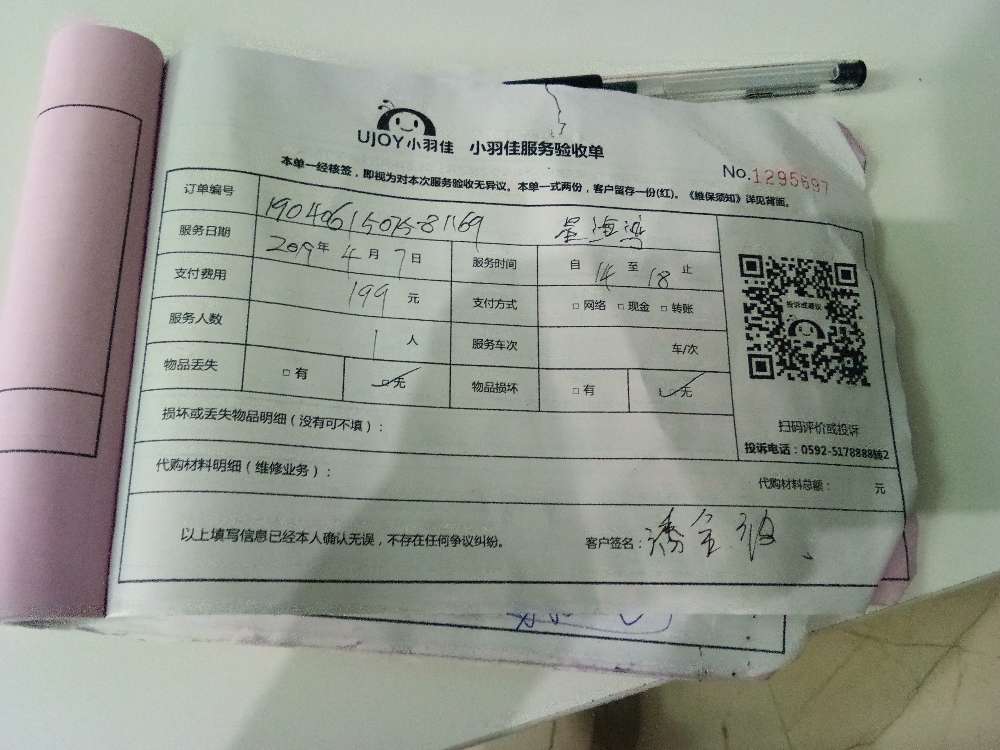 UJOY小羽佳 小羽佳服务验收单
No.1295697
本单一经核签，即视为对本次服务验收无异议。本单一式两份，客户留存一份(红)。《维保须知》详见背面。
订单编号 星海湾
服务日期 2019年4月7日 服务时间 自14至18止
支付费用 199元 支付方式 □网络 □现金 □转账
服务人数 1人 服务车次 车/次
物品丢失 □有 ☑无 物品损坏 □有 ☑无
投诉或建议
扫码评价或投诉
投诉电话：0592-5178888转2
损坏或丢失物品明细（没有可不填）：
代购材料明细（维修业务）： 代购材料总额： 元
以上填写信息已经本人确认无误，不存在任何争议纠纷。 客户签名：